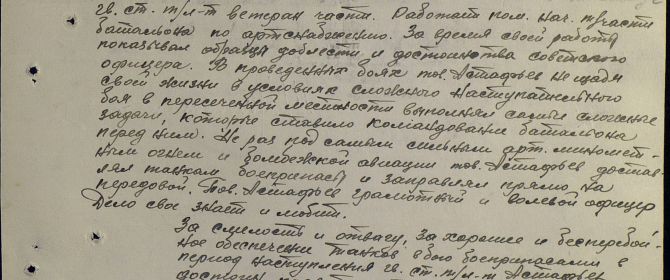 гв. ст. т/л-т ветеран части. Работает пом. нач. т/части
батальона по артснабжению. За время своей работы
показывал образцы доблести и достоинства советского
офицера. В проведенных боях тов. Астафьев не щадя
своей жизни в условиях сложного наступательного
боя в пересеченной местности выполнял самые сложные
задачи, которые ставило командование батальона
перед ним. Не раз под самым сильным арт. миномет-
ным огнем и бомбежкой авиации тов. Астафьев достав-
лял танкам боеприпасы и заправлял прямо на
передовой. Тов. Астафьев грамотный и волевой офицер
Дело свое знает и любит.
За смелость и отвагу, за хорошее и бесперебой-
ное обеспечение танков в бою боеприпасами в
период наступления гв. ст. т/л-т Астафьев
достоин